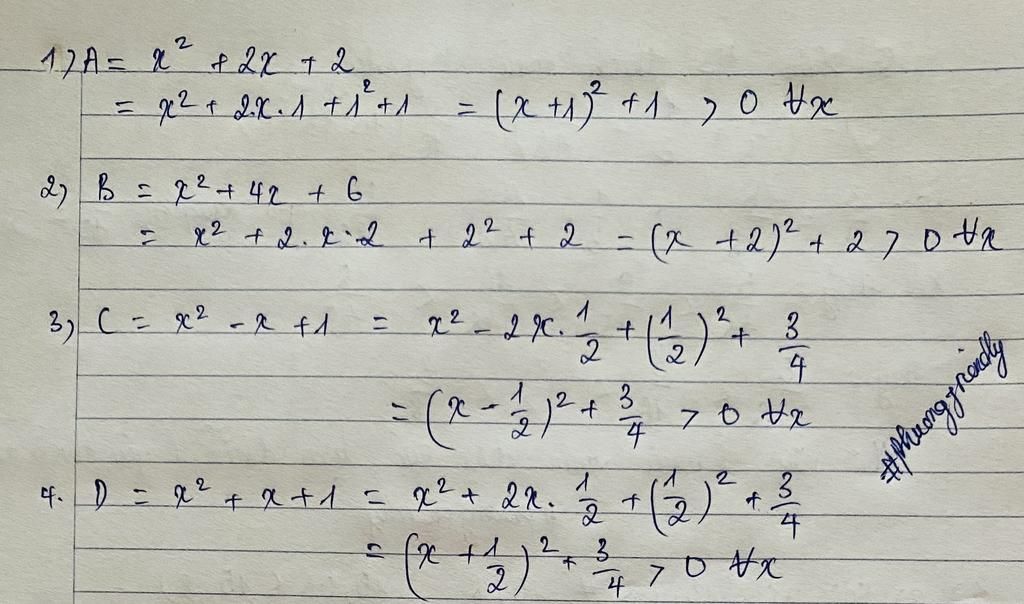 1) A = x² + 2x + 2
= x² + 2.x.1 + 1² + 1 = (x + 1)² + 1 > 0 ∀x
2) B = x² + 4x + 6
= x² + 2.x.2 + 2² + 2 = (x + 2)² + 2 > 0 ∀x
3) C = x² - x + 1 = x² - 2x.1/2 + (1/2)² + 3/4
= (x - 1/2)² + 3/4 > 0 ∀x
#phuongfriendly
4. D = x² + x + 1 = x² + 2x.1/2 + (1/2)² + 3/4
= (x + 1/2)² + 3/4 > 0 ∀x